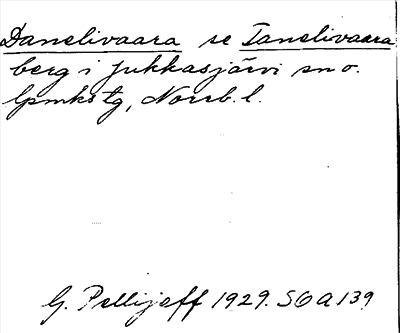 Danelivaara se Tanelivaara
berg i Jukkasjärvi sn o.
lpmkstg, Norrb. l.
G. Pellijeff 1929. SOA 139